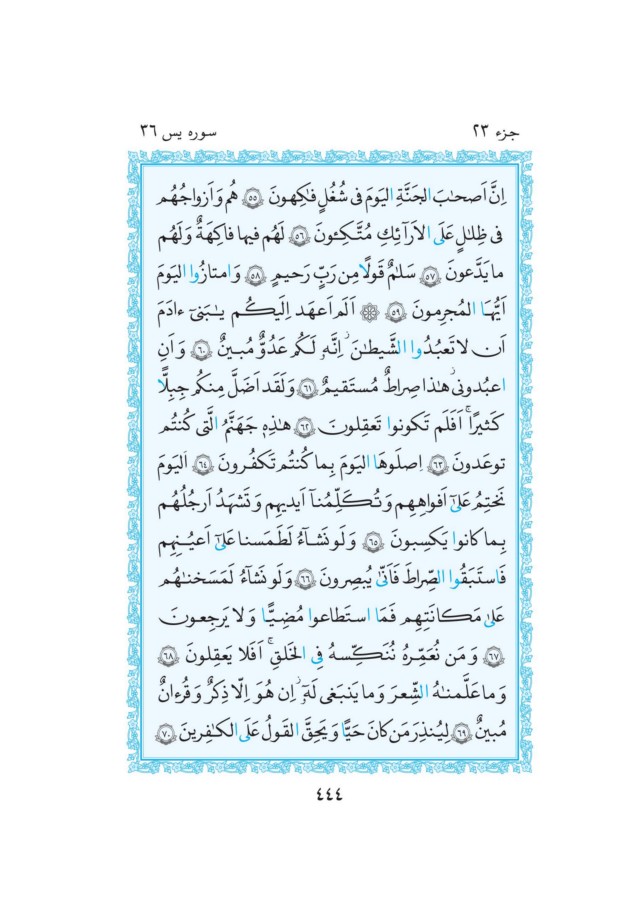 جزء ۲۳
سوره یس ۳۶
اِنَّ اَصحٰبَ الجَنَّةِ اليَومَ فى شُغُلٍ فٰكِهونَ ﴿٥٥﴾ هُم وَاَزواجُهُم
فى ظِلٰلٍ عَلَى الاَرآئِكِ مُتَّكِـٔونَ ﴿٥٦﴾ لَهُم فيها فاكِهَةٌ وَلَهُم
ما يَدَّعونَ ﴿٥٧﴾ سَلٰمٌ قَولًا مِن رَبٍّ رَحيمٍ ﴿٥٨﴾ وَامتازُوا اليَومَ
اَيُّهَا المُجرِمونَ ﴿٥٩﴾ ۞ اَلَم اَعهَد اِلَيكُم يٰبَنىٓ ءادَمَ
اَن لا تَعبُدُوا الشَّيطٰنَ ۖ اِنَّهٗ لَكُم عَدُوٌّ مُبينٌ ﴿٦٠﴾ وَاَنِ
اعبُدونى ۚ هٰذا صِراطٌ مُستَقيمٌ ﴿٦١﴾ وَلَقَد اَضَلَّ مِنكُم جِبِلًّا
كَثيرًا ۖ اَفَلَم تَكونوا تَعقِلونَ ﴿٦٢﴾ هٰذِهٖ جَهَنَّمُ الَّتى كُنتُم
توعَدونَ ﴿٦٣﴾ اِصلَوهَا اليَومَ بِما كُنتُم تَكفُرونَ ﴿٦٤﴾ اَليَومَ
نَختِمُ عَلىٰٓ اَفواهِهِم وَتُكَلِّمُنآ اَيديهِم وَتَشهَدُ اَرجُلُهُم
بِما كانوا يَكسِبونَ ﴿٦٥﴾ وَلَو نَشآءُ لَطَمَسنا عَلىٰٓ اَعيُنِهِم
فَاستَبَقُوا الصِّراطَ فَاَنّىٰ يُبصِرونَ ﴿٦٦﴾ وَلَو نَشآءُ لَمَسَخنٰهُم
عَلىٰ مَكانَتِهِم فَمَا استَطاعوا مُضِيًّا وَلا يَرجِعونَ
﴿٦٧﴾ وَمَن نُعَمِّرهُ نُنَكِّسهُ فِى الخَلقِ ۖ اَفَلا يَعقِلونَ ﴿٦٨﴾
وَما عَلَّمنٰهُ الشِّعرَ وَما يَنبَغى لَهٗٓ ۚ اِن هُوَ اِلّا ذِكرٌ وَقُرءانٌ
مُبينٌ ﴿٦٩﴾ لِيُنذِرَ مَن كانَ حَيًّا وَيَحِقَّ القَولُ عَلَى الكٰفِرينَ ﴿٧٠﴾
۴۴۴